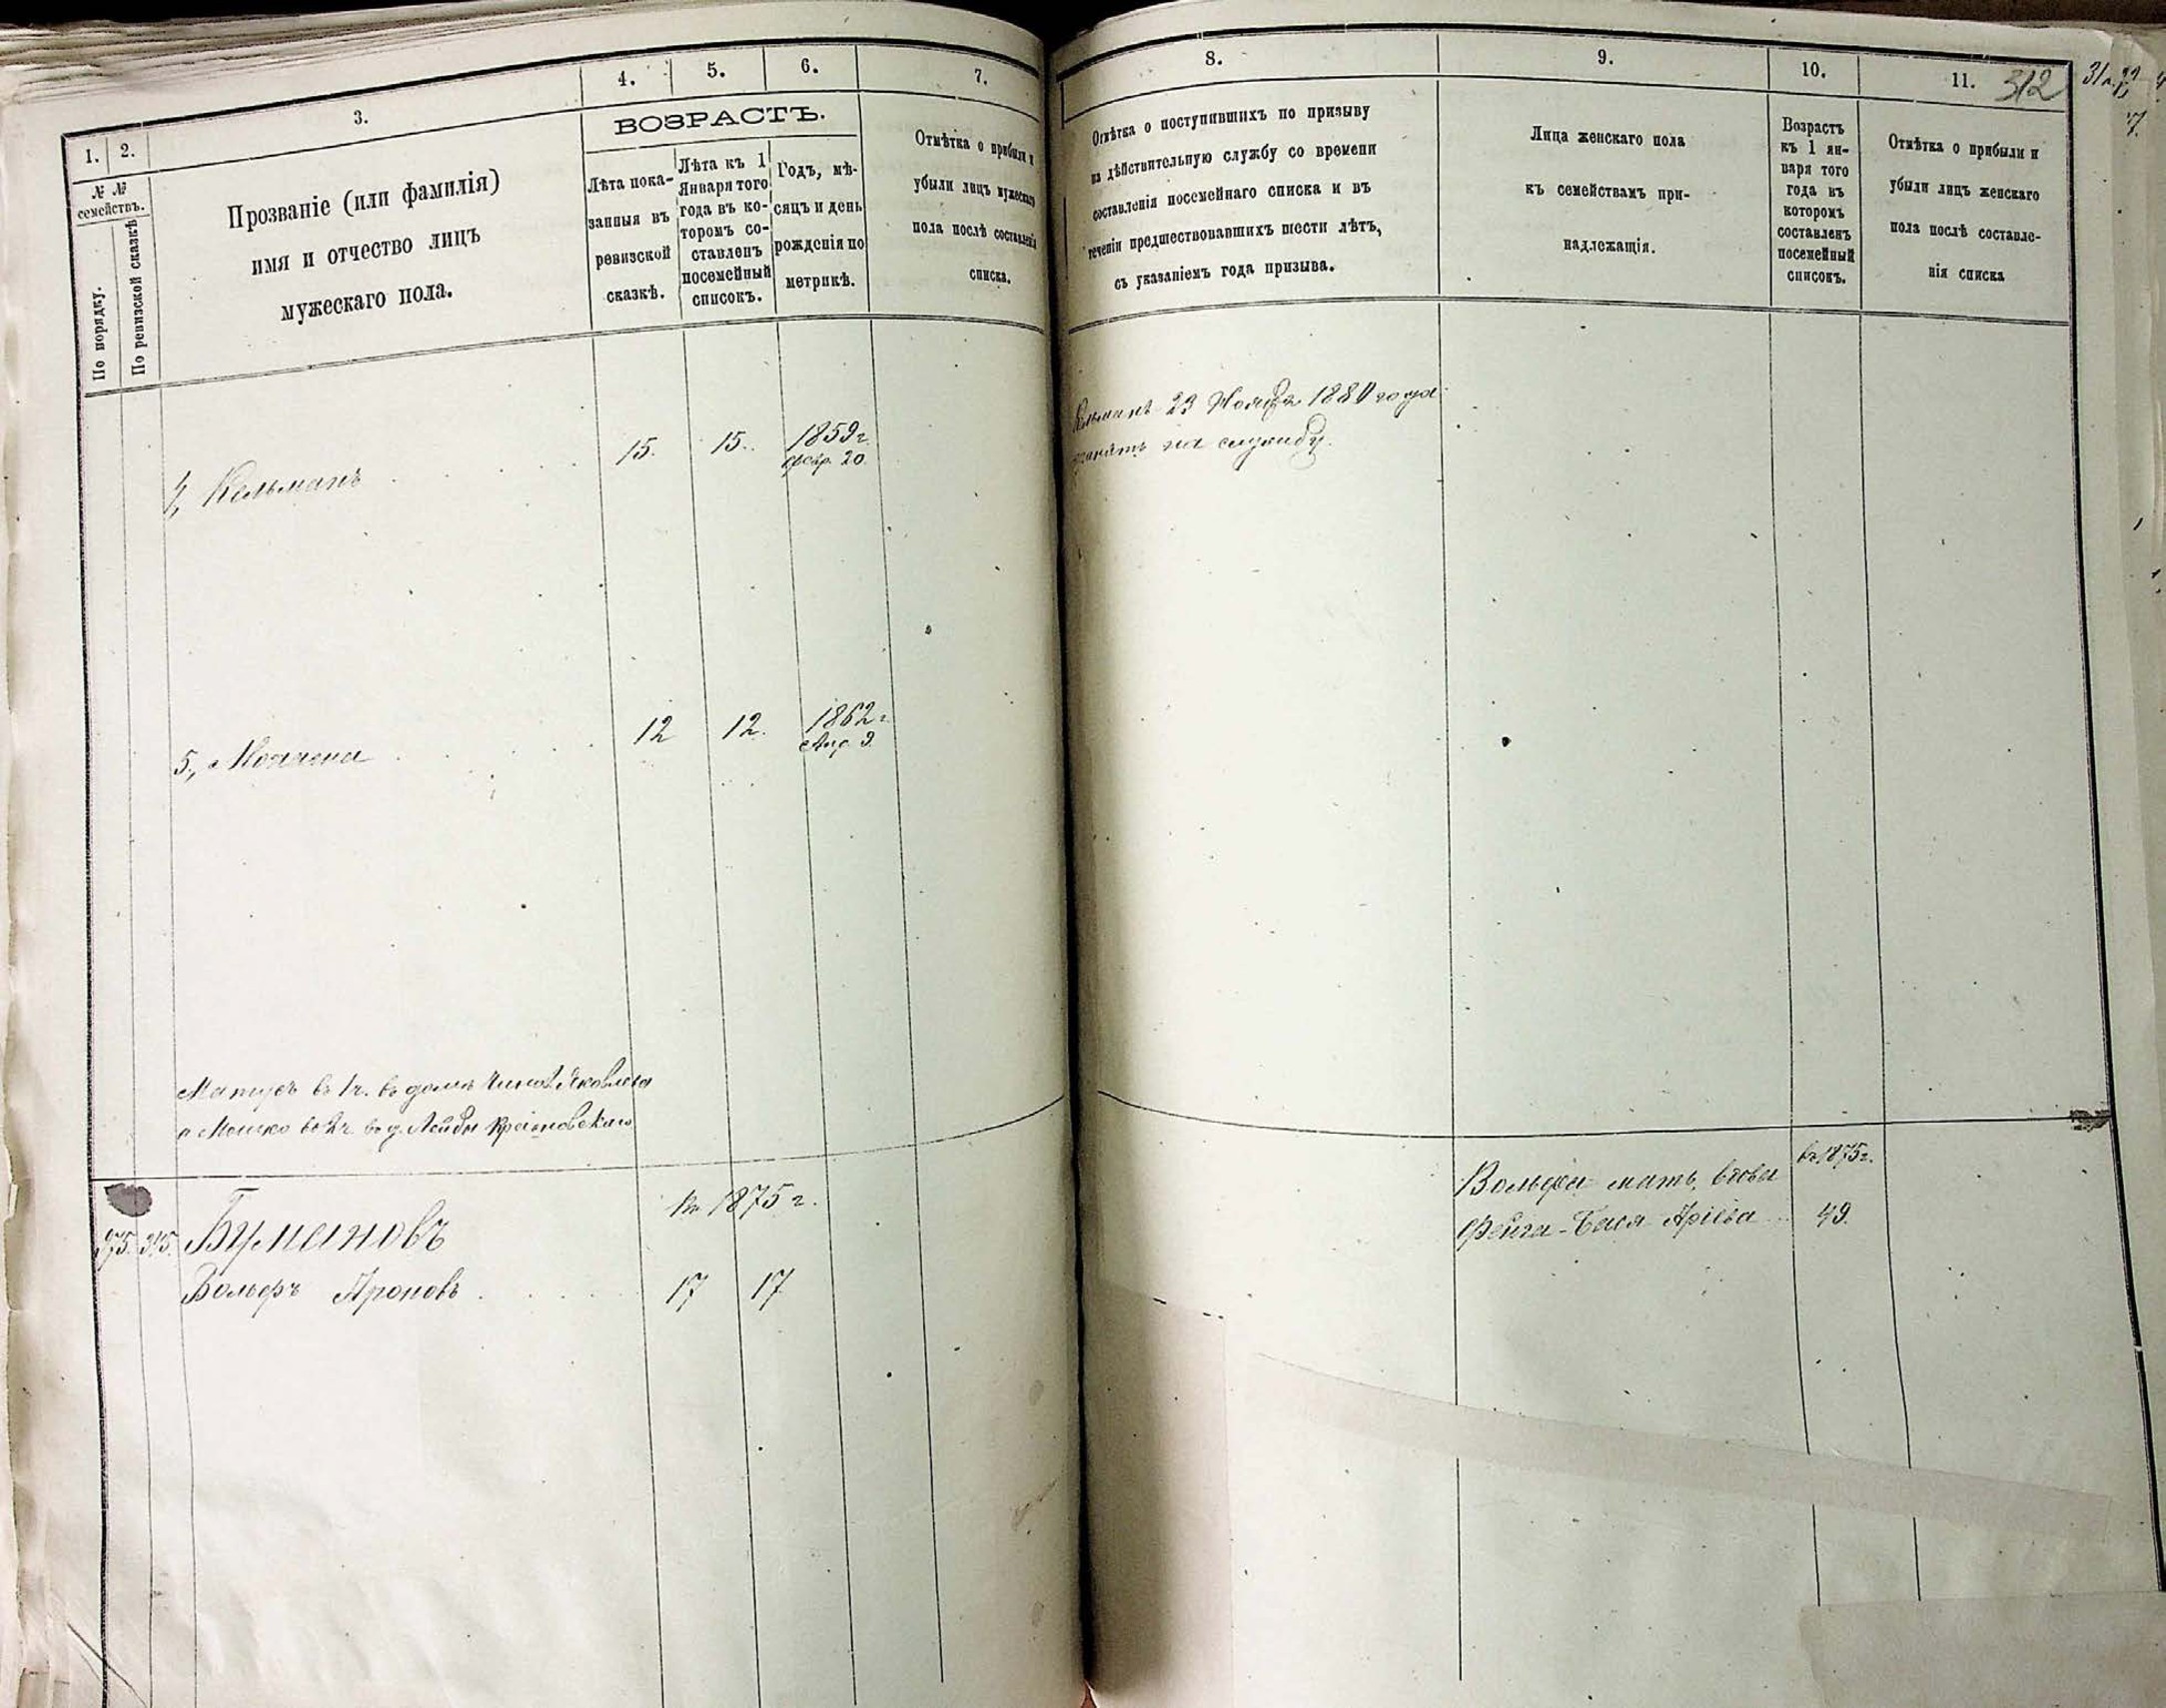 1.
2.
3.
4.
5.
6.
7.
№ №
семействъ.
По порядку.
По ревизской сказкѣ
Прозваніе (или фамилія)
имя и отчество лицъ
мужескаго пола.
ВОЗРАСТЪ.
Лѣта пока-
занныя въ
ревизской
сказкѣ.
Лѣта къ 1
Января того
года въ ко-
торомъ со-
ставленъ
посемейный
списокъ.
Годъ, мѣ-
сяцъ и день
рожденія по
метрикѣ.
Отмѣтка о прибыли и
убыли лицъ мужескаго
пола послѣ составленія
списка.
4, Кельманъ 15. 15. 1859 г.
февр. 20.
5, 12 12. 1862 г.
Апр. 9.
Матусъ въ 1 ч. въ домѣ Яковлева
а Мошко во 2 ч. въ д. Лейбы
975. 345. Бумановъ въ 1875 г.
Вольфъ Ароновъ 17 17
8.
9.
10.
11. 312
Отмѣтка о поступившихъ по призыву
на дѣйствительную службу со времени
составленія посемейнаго списка и въ
теченіи предшествовавшихъ шести лѣтъ,
съ указаніемъ года призыва.
Лица женскаго пола
къ семействамъ при-
надлежащія.
Возрастъ
къ 1 ян-
варя того
года въ
которомъ
составленъ
посемейный
списокъ.
Отмѣтка о прибыли и
убыли лицъ женскаго
пола послѣ составле-
нія списка
Кельманъ 23 Ноября года
принятъ на службу.
Вольфа мать, вдова въ 1875 г.
Фейга-Бася Аріева 49.